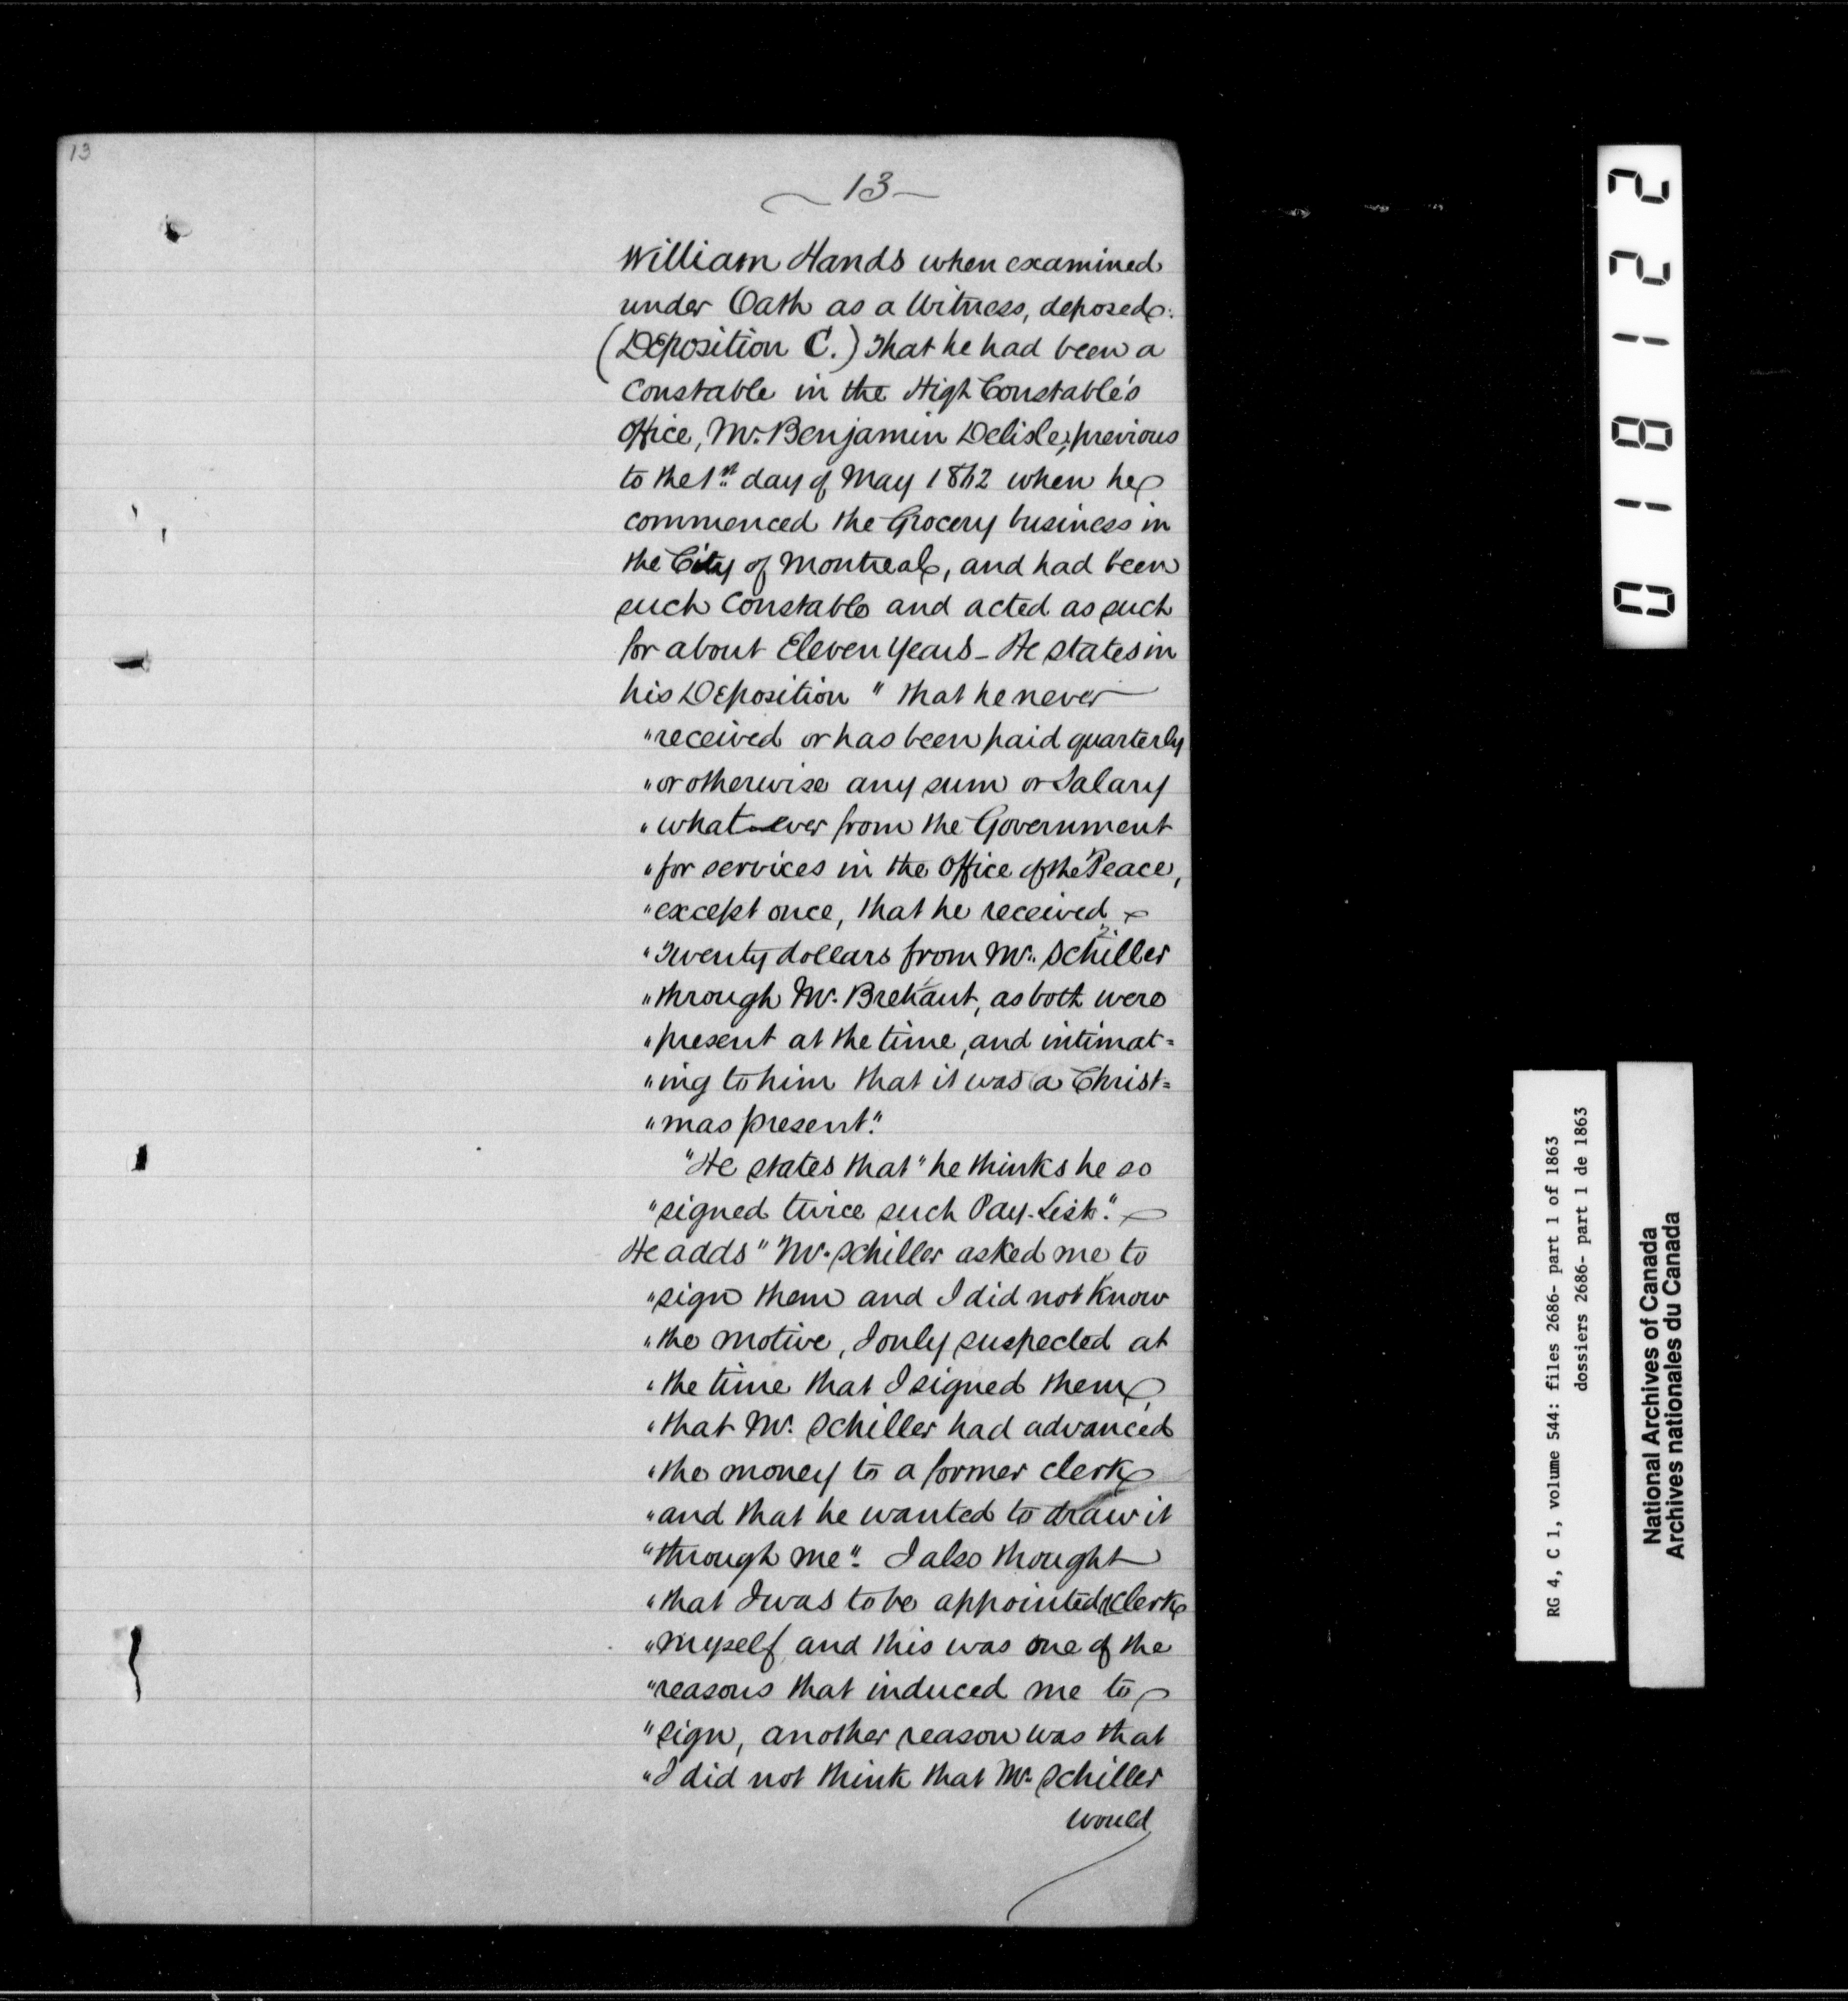 13
~ 13 ~
William Hands when examined
under Oath as a Witness, deposed:
(Deposition C.) That he had been a
Constable in the High Constable's
Office, Mr. Benjamin Delisle, previous
to the 1st day of May 1862 when he
commenced the Grocery business in
the City of Montreal, and had been
such Constable and acted as such
for about Eleven Years - He states in
his Deposition " that he never
" received or has been paid quarterly
" or otherwise any sum or Salary
" what-ever from the Government
" for services in the Office of the Peace,
" except once, that he received
" Twenty dollars from Mr. Schiller
" through Mr. Brehaut, as both were
" present at the time, and intimat=
" ing to him that it was a Christ=
" mas present."
"He states that " he thinks he so
" signed twice such Pay-List."
He adds " Mr. Schiller asked me to
" sign them and I did not Know
" the motive, I only suspected at
" the time that I signed them,
" that Mr. Schiller had advanced
" the money to a former clerk
" and that he wanted to draw it
" through me". I also thought
" that I was to be appointed Clerk
" myself and this was one of the
" reasons that induced me to
" sign, another reason was that
" I did not think that Mr. Schiller
would
018122
RG 4, C 1, volume 544: files 2686- part 1 of 1863
dossiers 2686- part 1 de 1863
National Archives of Canada
Archives nationales du Canada